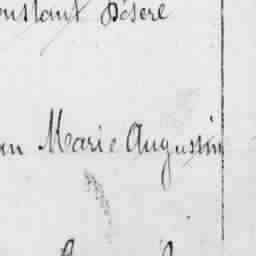 onstant Désiré
an Marie Augustin